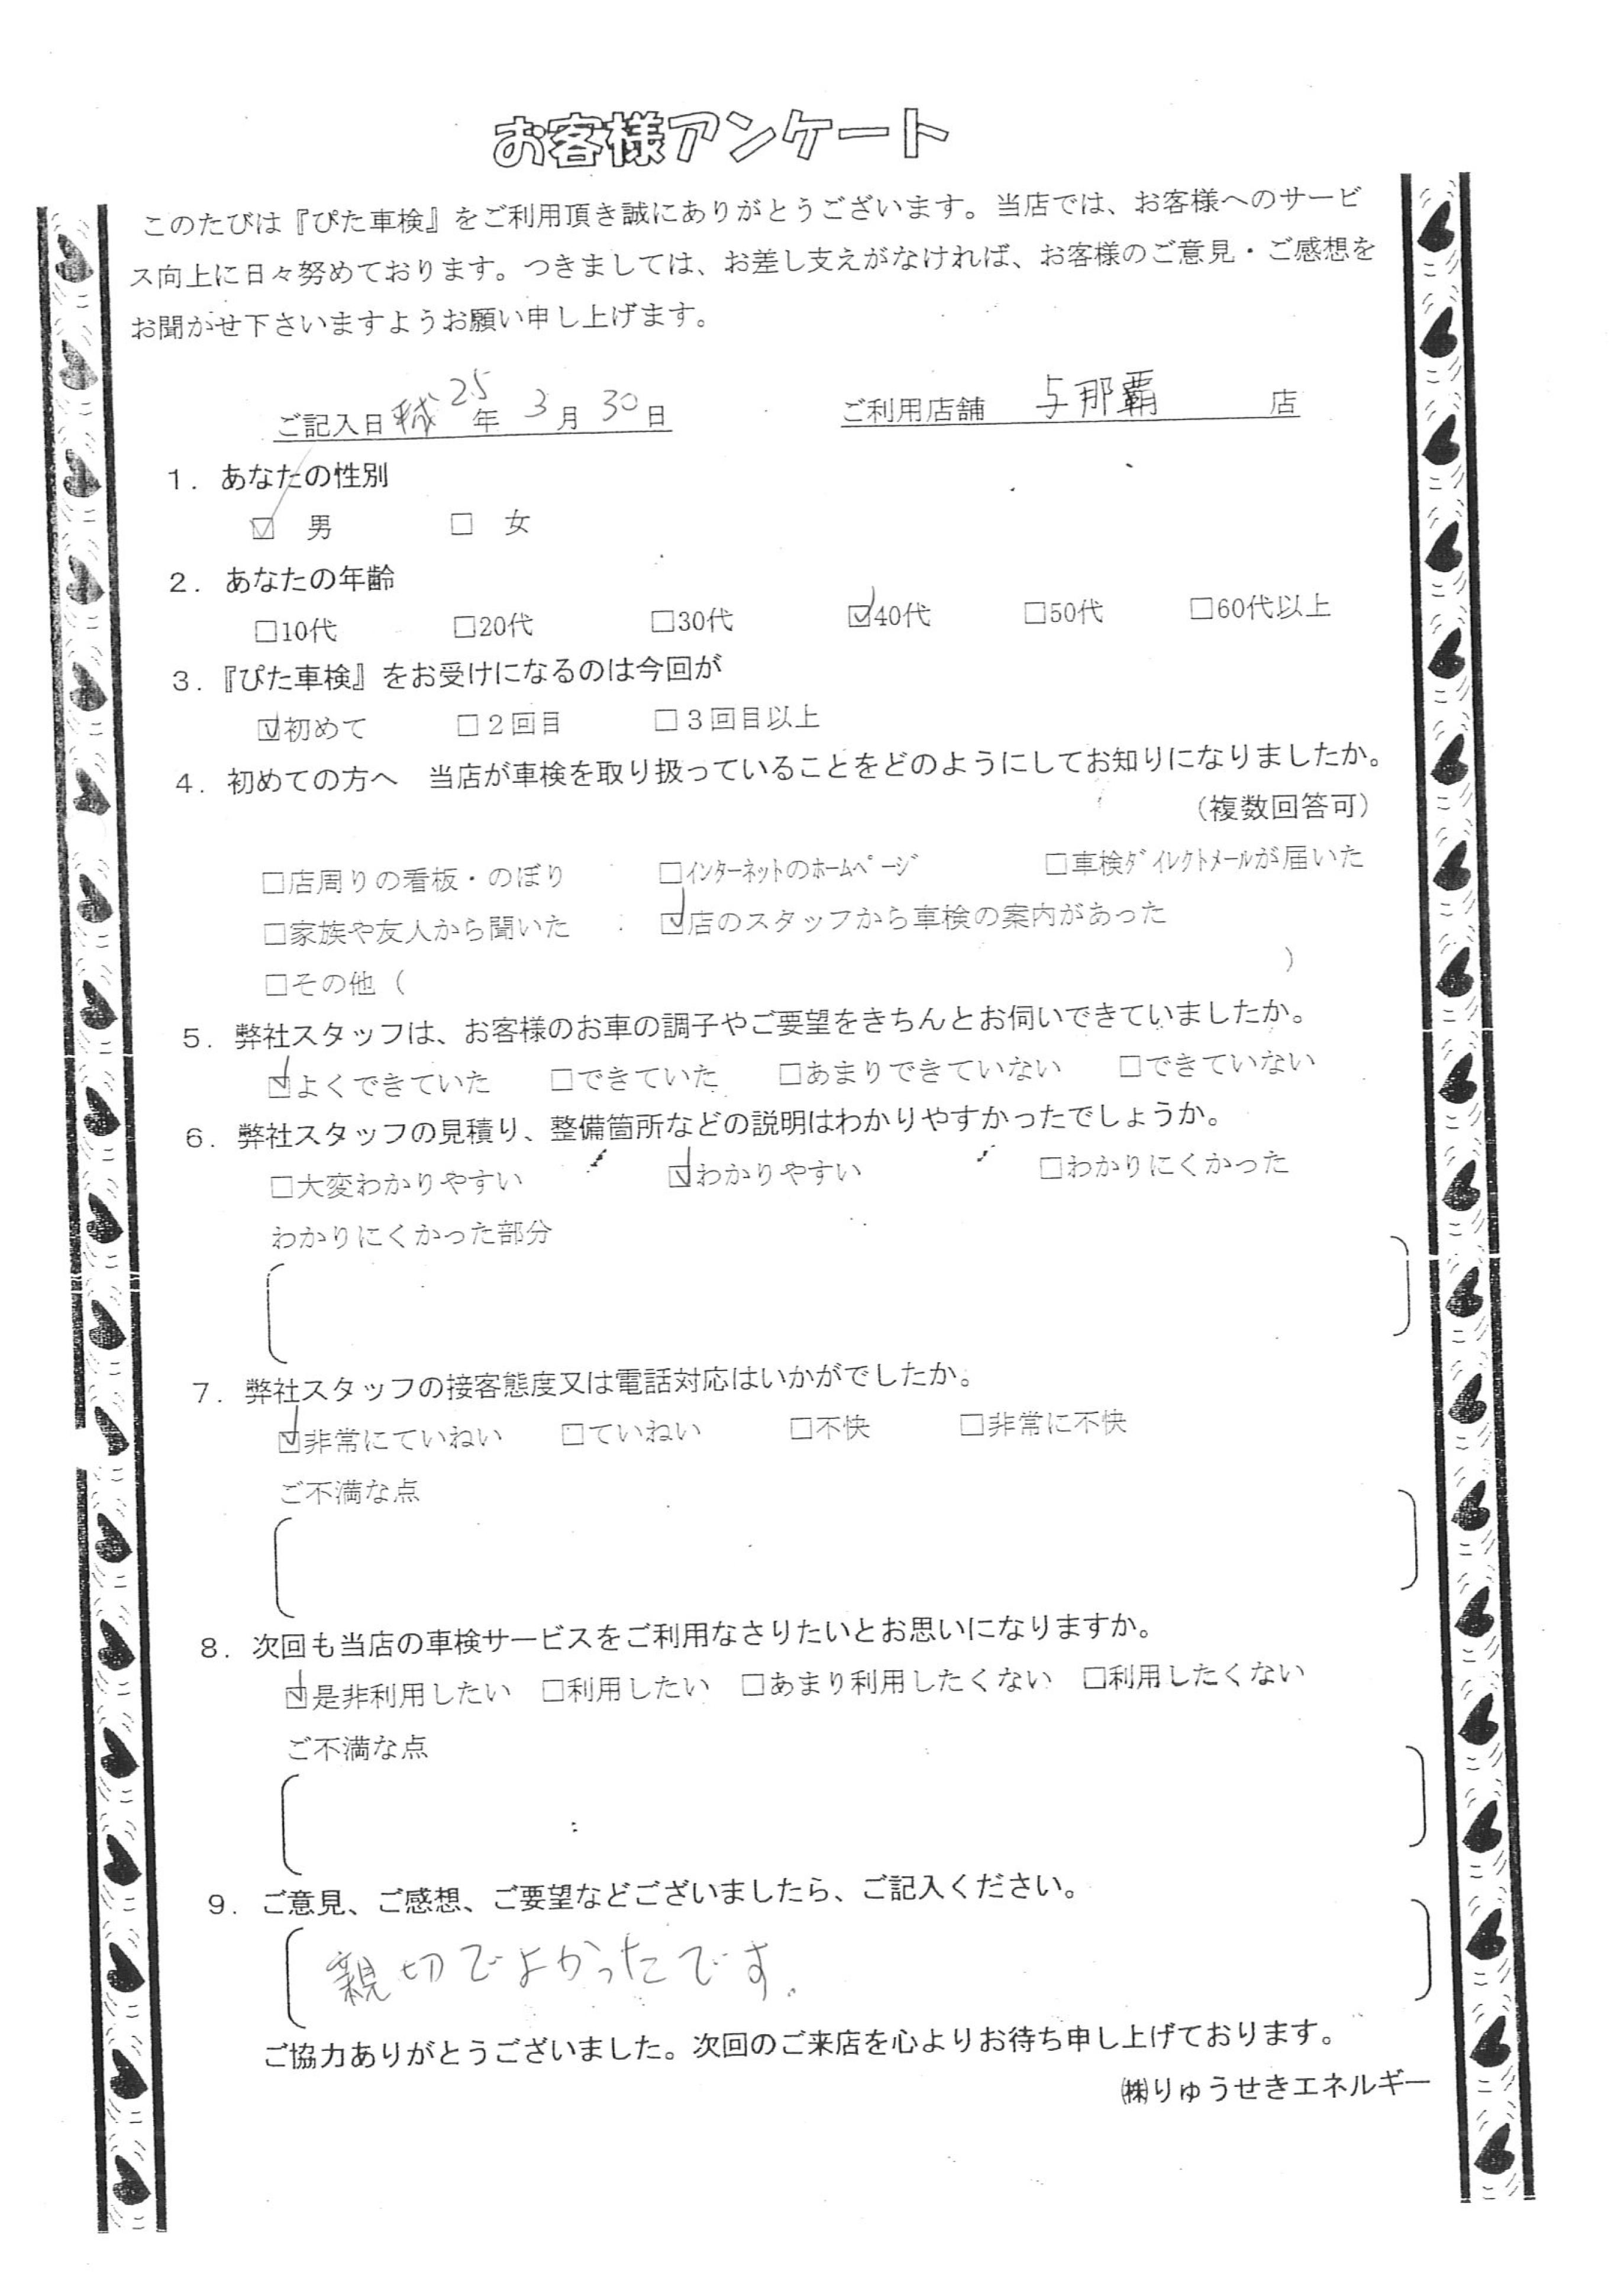 お客様アンケート
このたびは『ぴた車検』をご利用頂き誠にありがとうございます。当店では、お客様へのサービ
ス向上に日々努めております。つきましては、お差し支えがなければ、お客様のご意見・ご感想を
お聞かせ下さいますようお願い申し上げます。
ご記入日 平成 25年 3月 30日 ご利用店舗 与那覇 店
1. あなたの性別
☑ 男 □ 女
2. あなたの年齢
□10代 □20代 □30代 ☑40代 □50代 □60代以上
3.『ぴた車検』をお受けになるのは今回が
☑初めて □2回目 □3回目以上
4. 初めての方へ 当店が車検を取り扱っていることをどのようにしてお知りになりましたか。
(複数回答可)
□店周りの看板・のぼり □ｲﾝﾀｰﾈｯﾄのﾎｰﾑﾍﾟｰｼﾞ □車検ﾀﾞｲﾚｸﾄﾒｰﾙが届いた
□家族や友人から聞いた ☑店のスタッフから車検の案内があった
□その他( )
5. 弊社スタッフは、お客様のお車の調子やご要望をきちんとお伺いできていましたか。
☑よくできていた □できていた □あまりできていない □できていない
6. 弊社スタッフの見積り、整備箇所などの説明はわかりやすかったでしょうか。
□大変わかりやすい ☑わかりやすい □わかりにくかった
わかりにくかった部分
7. 弊社スタッフの接客態度又は電話対応はいかがでしたか。
☑非常にていねい □ていねい □不快 □非常に不快
ご不満な点
8. 次回も当店の車検サービスをご利用なさりたいとお思いになりますか。
☑是非利用したい □利用したい □あまり利用したくない □利用したくない
ご不満な点
9. ご意見、ご感想、ご要望などございましたら、ご記入ください。
親切でよかったです.
ご協力ありがとうございました。次回のご来店を心よりお待ち申し上げております。
㈱りゅうせきエネルギー